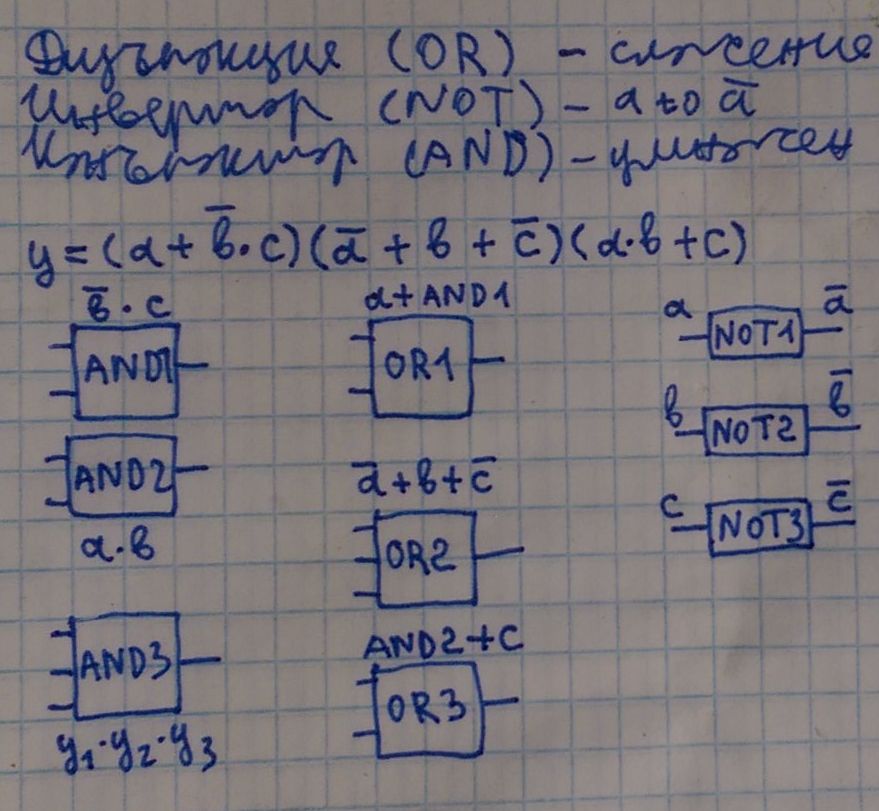 Дизъюнкция (OR) – сложение
Инвертор (NOT) – a to a̅
Конъюнктор (AND) – умножен
y = (a + b̅·c)(a̅ + b + c̅)(a·b + c)
b̅ · c
AND1
AND2
a·b
AND3
y₁·y₂·y₃
a+AND1
OR1
a̅+b+c̅
OR2
AND2+c
OR3
a NOT1 a̅
b NOT2 b̅
c NOT3 c̅